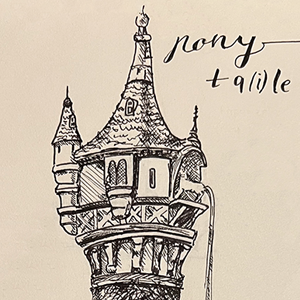 pony
ta(i)le